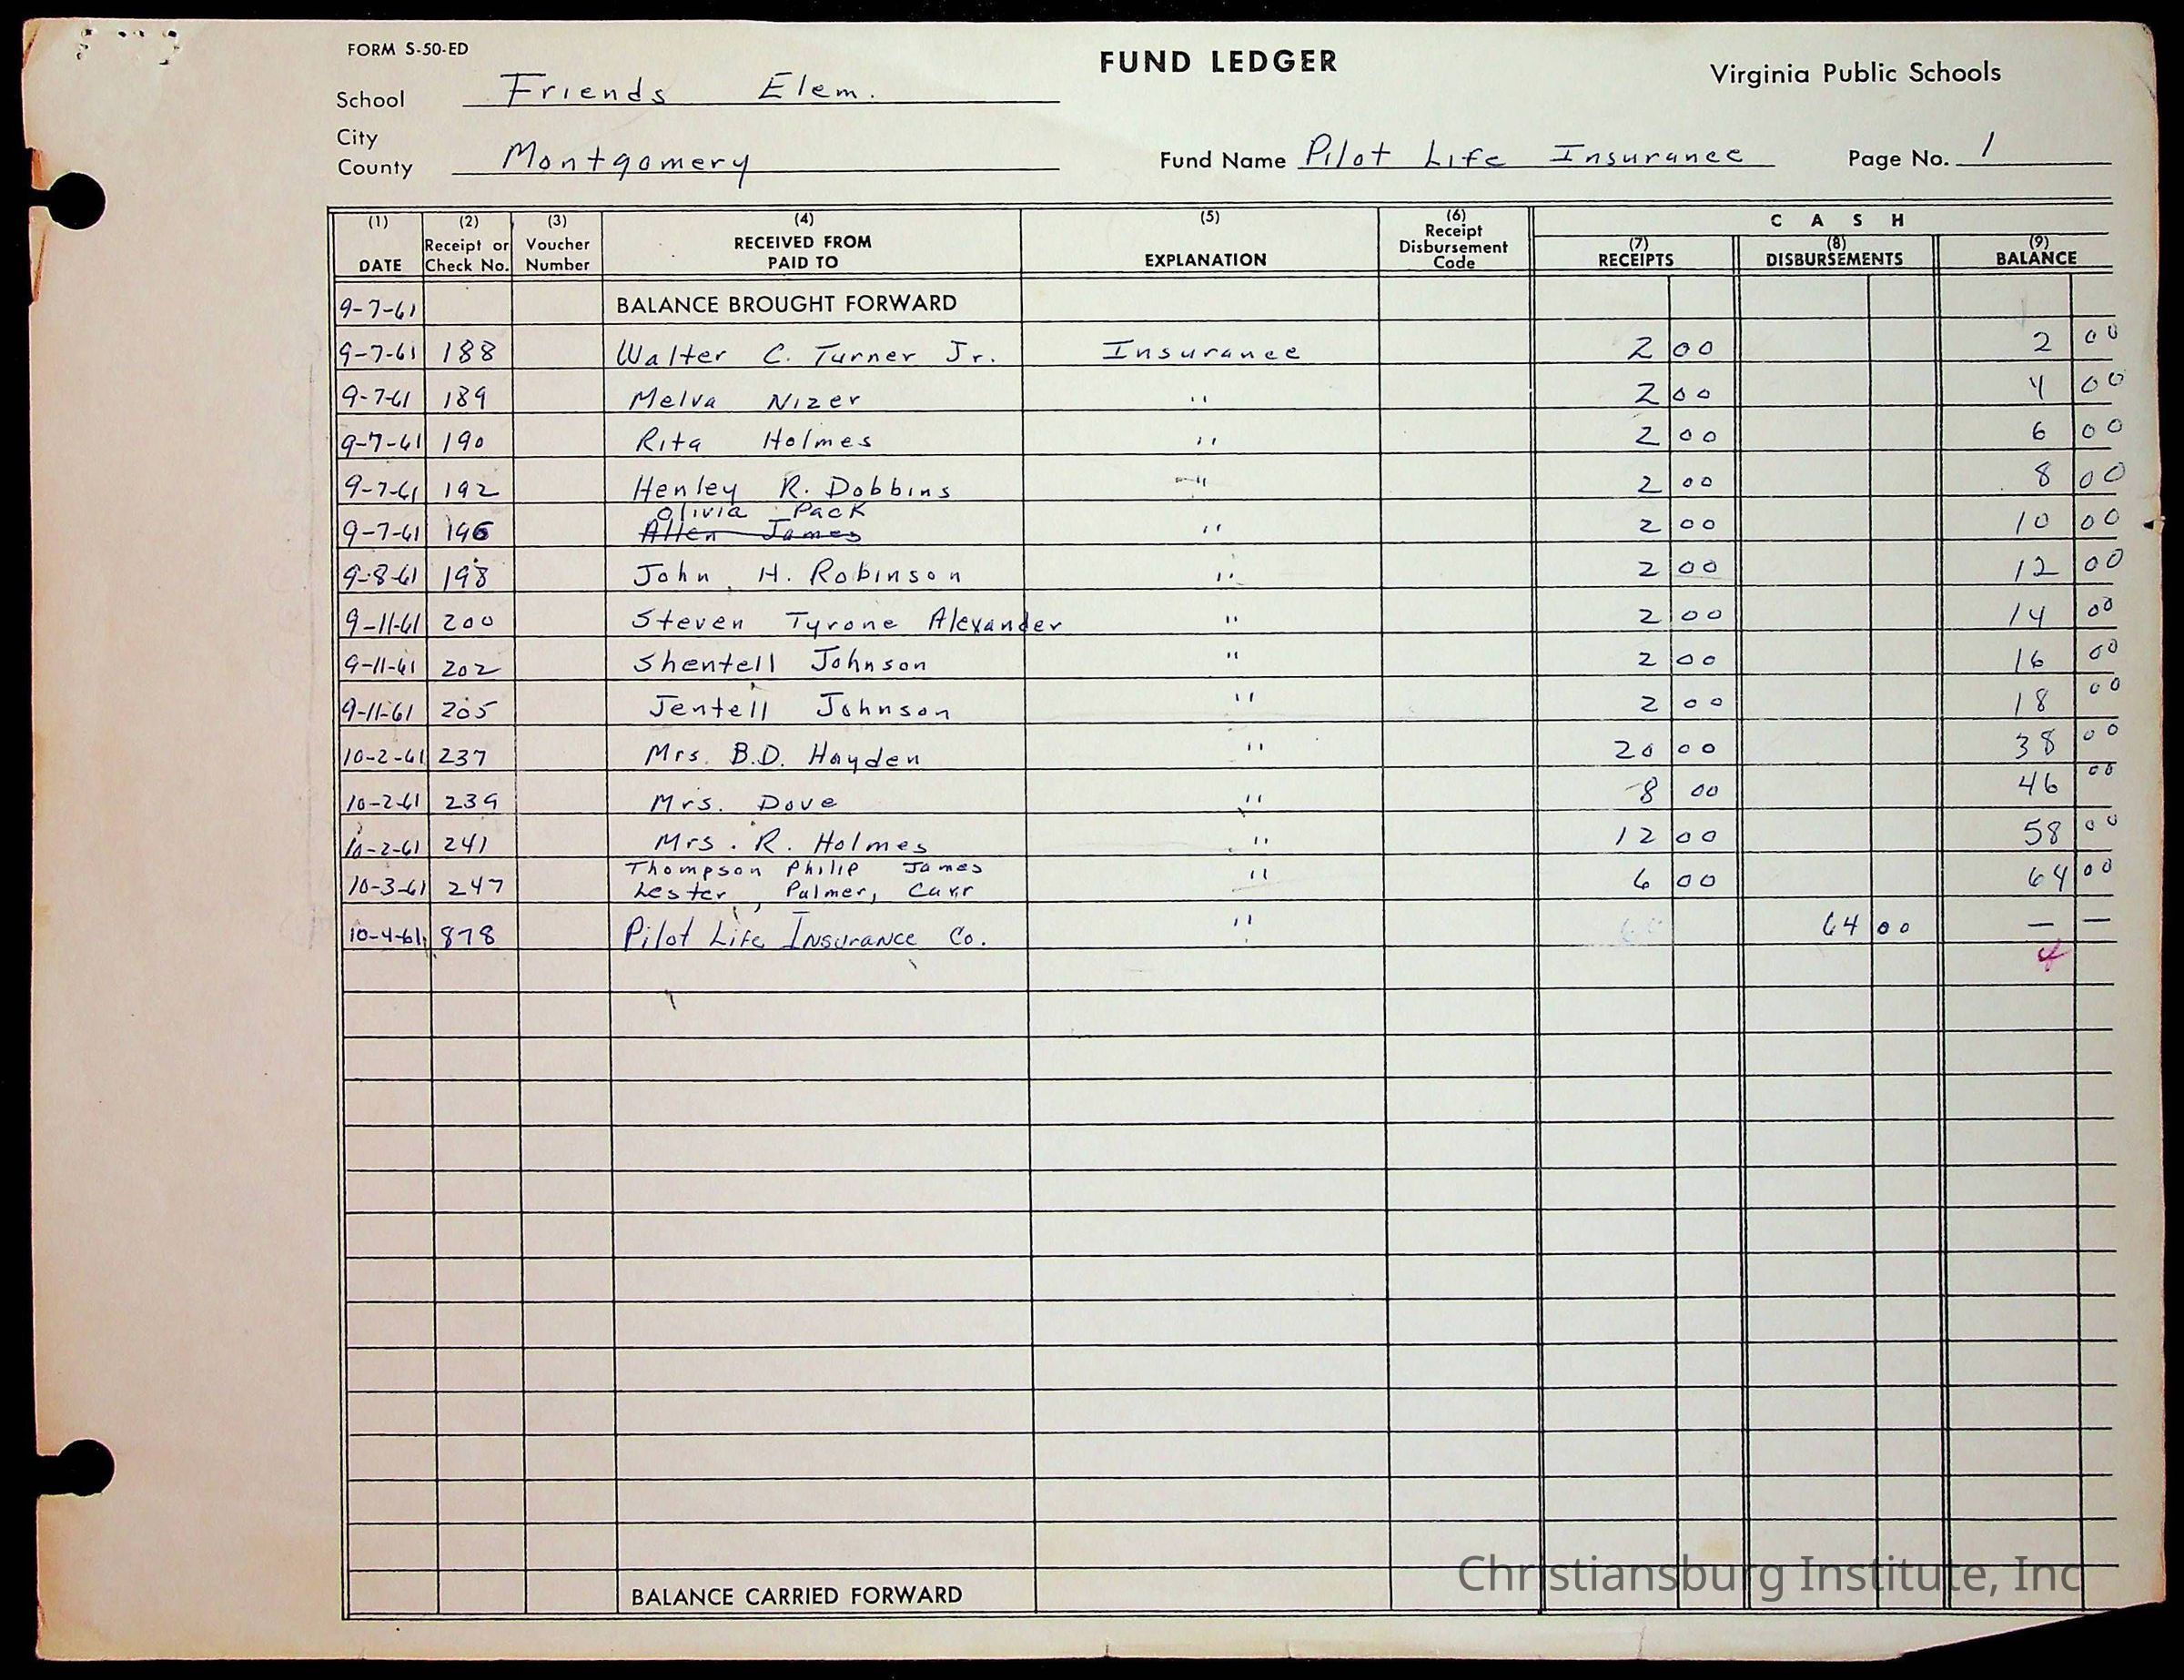 FORM S-50-ED
FUND LEDGER
Virginia Public Schools
School Friends Elem.
City
County Montgomery
Fund Name Pilot Life Insurance
Page No. 1
(1) (2) (3) (4) (5) (6) C A S H
DATE Receipt or Check No. Voucher Number RECEIVED FROM PAID TO EXPLANATION Receipt Disbursement Code (7) RECEIPTS (8) DISBURSEMENTS (9) BALANCE
9-7-61 BALANCE BROUGHT FORWARD
9-7-61 188 Walter C. Turner Jr. Insurance 2 00 2 00
9-7-61 189 Melva Nizer " 2 00 4 00
9-7-61 190 Rita Holmes " 2 00 6 00
9-7-61 192 Henley R. Dobbins " 2 00 8 00
Olivia Pack
9-7-61 196 Allen James " 2 00 10 00
9-8-61 198 John H. Robinson " 2 00 12 00
9-11-61 200 Steven Tyrone Alexander " 2 00 14 00
9-11-61 202 Shentell Johnson " 2 00 16 00
9-11-61 205 Jentell Johnson " 2 00 18 00
10-2-61 237 Mrs. B.D. Hayden " 20 00 38 00
10-2-61 239 Mrs. Dove " 8 00 46 00
10-2-61 241 Mrs. R. Holmes " 12 00 58 00
Thompson Philip James
10-3-61 247 Lester, Palmer, Carr " 6 00 64 00
10-4-61 878 Pilot Life Insurance Co. " 64 00 — —
BALANCE CARRIED FORWARD
Christiansburg Institute, Inc